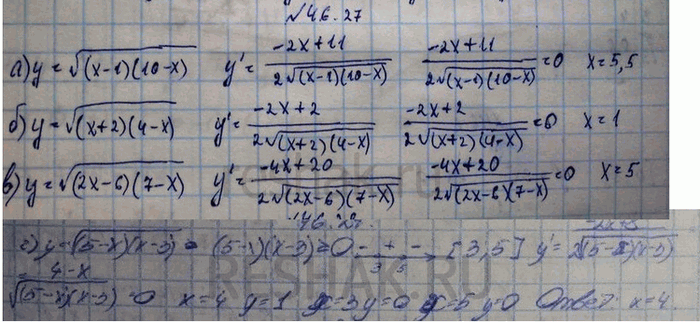 №46.27
а) y = √((x-1)(10-x)) y' = (-2x+11)/(2√((x-1)(10-x))) (-2x+11)/(2√((x-1)(10-x))) = 0 x = 5,5
б) y = √((x+2)(4-x)) y' = (-2x+2)/(2√((x+2)(4-x))) (-2x+2)/(2√((x+2)(4-x))) = 0 x = 1
в) y = √((2x-6)(7-x)) y' = (-4x+20)/(2√((2x-6)(7-x))) (-4x+20)/(2√((2x-6)(7-x))) = 0 x = 5
г) y = √((5-x)(x-3)) = (5-x)(x-3) ≥ 0 - + - 3 5 [3,5] y' = /(2√((5-x)(x-3)))
= (4-x)/√((5-x)(x-3)) = 0 x=4 y=1 x=3 y=0 x=5 y=0 Ответ: x=4.
RESHAK.RU